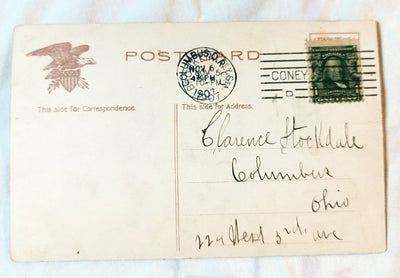 POST CARD
COLUMBUS, O.
NOV 6
1907
CONEY
D
This side for Correspondence.
This side for Address.
Clarence Stockdale
Columbus
Ohio
224 West 3rd ave